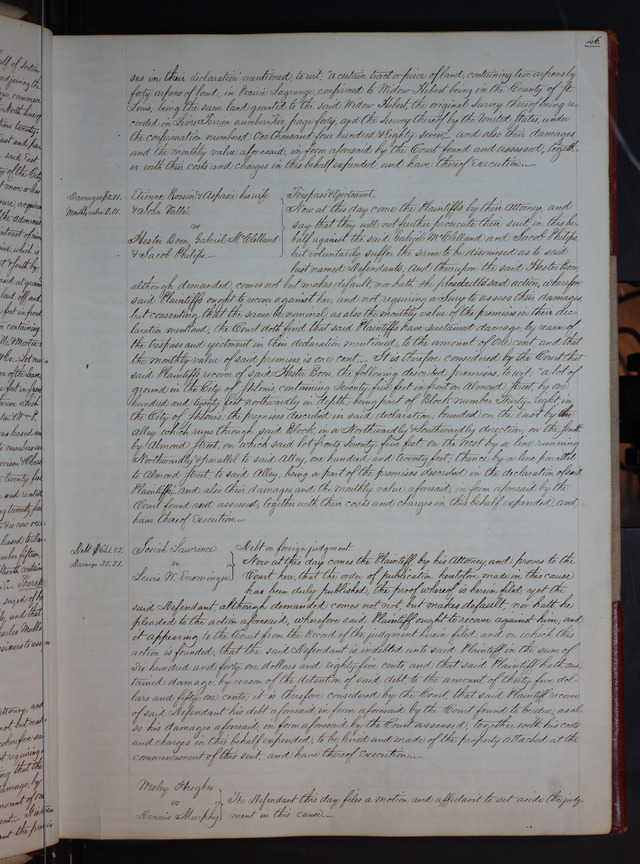 46.
ses in their declaration mentioned to wit, "a certain tract or piece of land, containing two arpens by
forty arpens of land, in Prairie Lagrange, confirmed to Widow Hebert being in the County of St
Louis, being the same land granted to the said Widow Hebert, the original Survey thereof being re-
corded in Livre Terrien number Two page forty, and the Survey thereof by the United States, under
the confirmation numbered One thousand four hundred & Eighty seven" and also their damages
and the monthly value aforesaid, in form aforesaid by the Court found and assessed, togeth-
er with their costs and charges in this behalf expended, and have thereof Execution.
Damages $0.01.
Monthly value 0.01.
Etienne Bossin & Aspasie his wife
& John Valle.
vs
Hester Boon, Gabriel McClelland
& Jacob Philips.
Trespass & Ejectment.
Now at this day come the Plaintiffs by their Attorney, and
say that they will not further prosecute their suit in this be-
half against the said Gabriel McClelland and Jacob Philips
but voluntarily suffer the same to be dismissed as to said
last named Defendants, and thereupon the said Hester Boon
although demanded, comes not but makes default, nor hath she pleaded to said action, wherefore
said Plaintiffs ought to recover against her, and not requiring a Jury to assess their damages,
but consenting that the same be nominal, as also the monthly value of the premises in their dec-
laration mentioned, the Court doth find that said Plaintiffs have sustained damage, by reason of
the trespass and ejectment in their declaration mentioned, to the amount of one cent, and that
the monthly value of said premises is one cent. It is therefore considered by the Court that
said Plaintiffs recover of said Hester Boon the following described premises, to wit, "a lot of
ground in the City of St Louis, containing Seventy five feet in front on Almond Street, by one
hundred and twenty feet northwardly in depth, being part of Block number Thirty Eight in
the City of St Louis, the premises described in said declaration, bounded on the East by the
alley which runs through said Block, in a Northwardly & Southwardly direction, on the South
by Almond street, on which said lot fronts Seventy five feet, on the West by a line running
Northwardly & parallel to said Alley, one hundred and twenty feet, thence by a line parallel
to Almond street, to said Alley, being a part of the premises described in the declaration of said
Plaintiffs", and also their damages and the monthly value aforesaid, in form aforesaid by the
Court found and assessed, together with their costs and charges in this behalf expended, and
have thereof Execution.
Debt $641.85.
Damage 35.51.
Josiah Lawrence
vs
Lewis W. Enominger
Debt on foreign judgment.
Now at this day comes the Plaintiff, by his Attorney, and proves to the
Court here, that the order of publication heretofore made in this cause
has been duly published, the proof whereof is herein filed, yet the
said Defendant although demanded comes not, but makes default, nor hath he
pleaded to the action aforesaid, wherefore said Plaintiff ought to recover against him, and
it appearing to the Court from the Record of the judgment herein filed, and on which this
action is founded, that the said Defendant is indebted unto said Plaintiff in the sum of
Six hundred and forty one dollars and eighty five cents, and that said Plaintiff hath sus-
tained damage, by reason of the detention of said debt to the amount of thirty five dol-
lars and fifty one cents; it is therefore considered by the Court, that said Plaintiff recover
of said Defendant his debt aforesaid, in form aforesaid by the Court found to be due, as al-
so his damages aforesaid, in form aforesaid by the Court assessed, together with his costs
and charges in this behalf expended; to be levied and made of the property attached at the
commencement of this suit, and have thereof Execution.
Wesley Hughes
vs
Dennis Murphy
The Defendant this day files a motion and affidavit to set aside the judg-
ment in this cause.